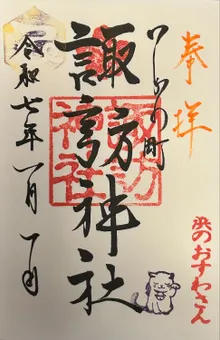 奉拝
つしめり町
諏訪神社
令和七年一月一日
浜のおすわさん
諏訪神社